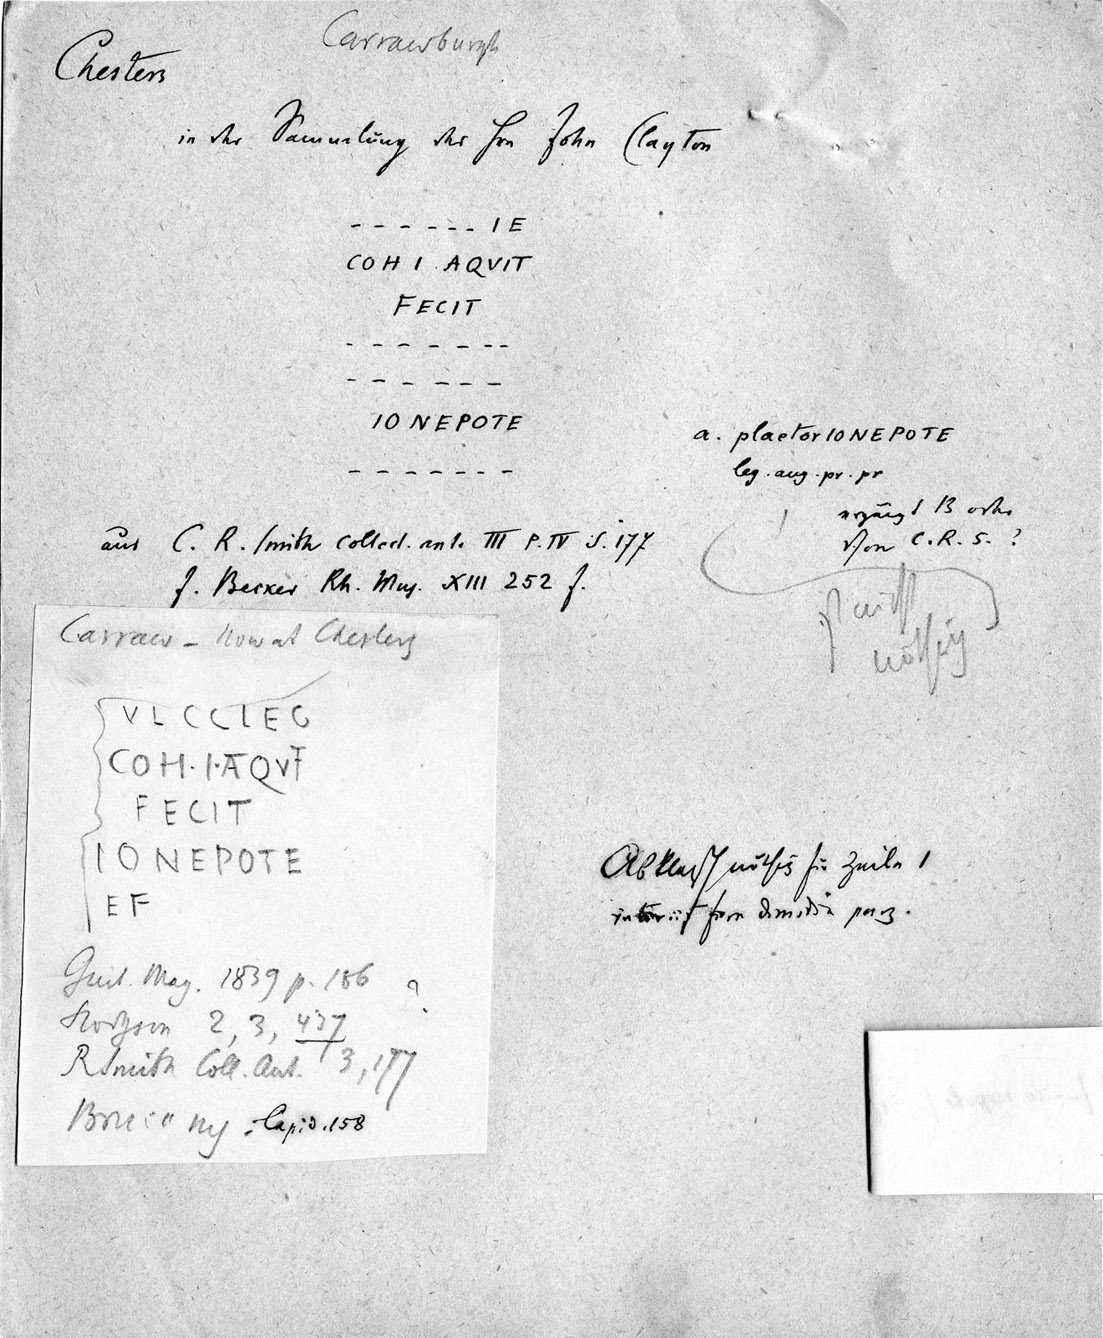 Carrawburgh
Chesters
in der Sammlung des Hrn John Clayton
- - - - - - IE
COH I AQVIT
FECIT
- - - - - - -
- - - - - -
IONEPOTE
- - - - - - -
a. plaetorIONEPOTE
leg. aug. pr. pr
ergänzt B oder
schon C. R. S. ?
aus C. R. Smith collect. ant. III P. IV S. 177
f. Becker Rh. Mus. XIII 252 f.
Carraw - now at Chesters
VLCCLEG
COH. I. AQVT
FECIT
IONEPOTE
EF
Gent. Mag. 1839 p. 186 ?
Hodgson 2, 3, 437
RSmith Coll. Ant. 3, 177
Bruce Lapid. 158
Abklatsch nöthig für Zeile 1